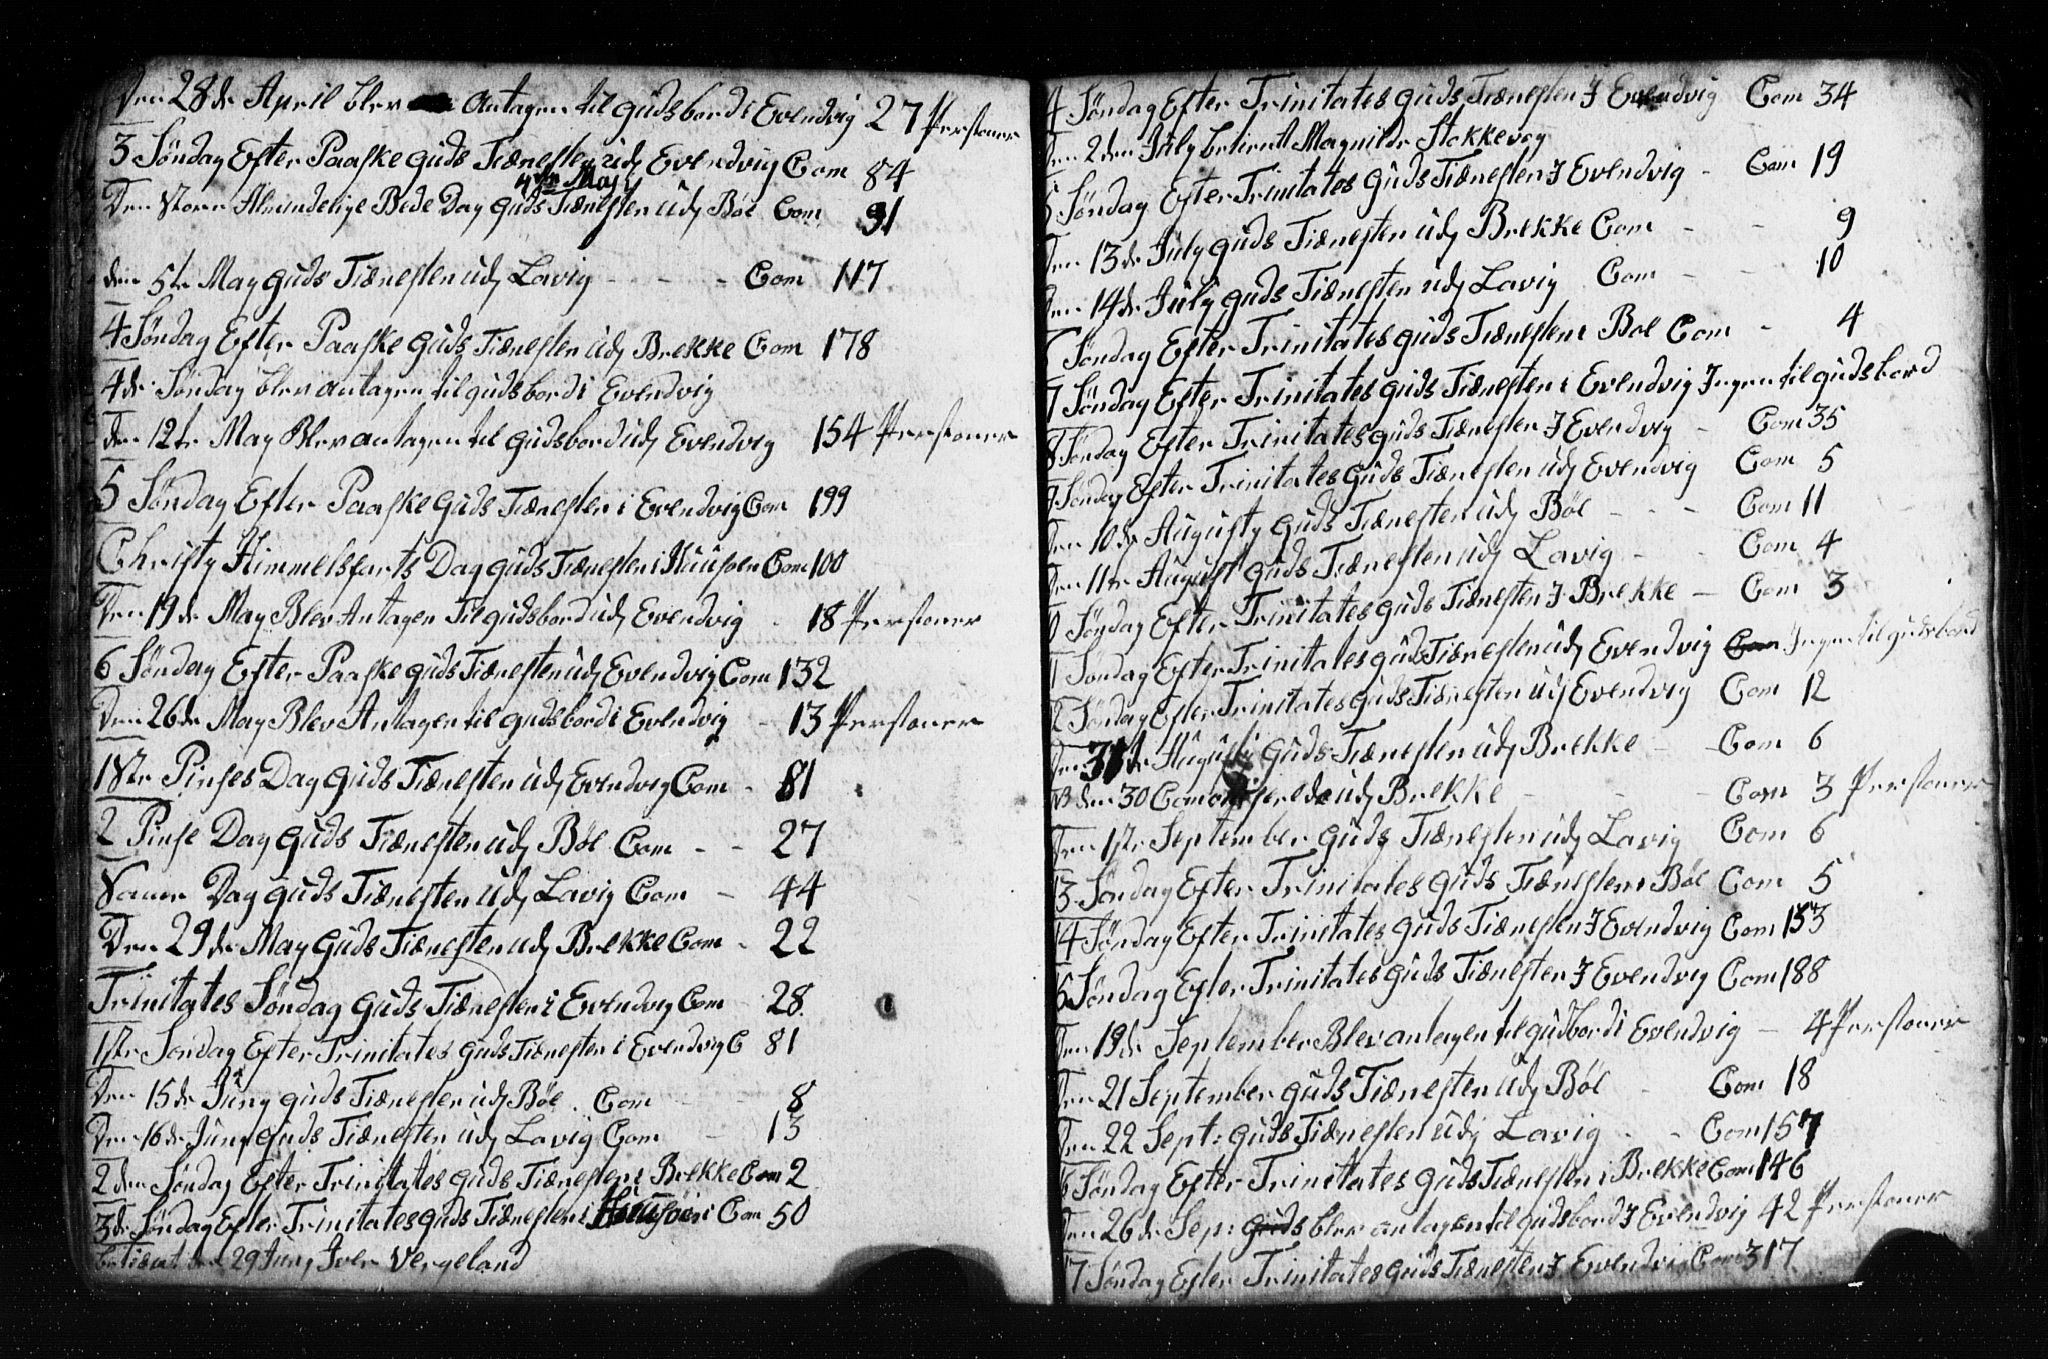 Den 28de April blev Antagen til gudsbord i Evendvig 27 Personer
3 Søndag Efter Paaske Guds Tiænesten udj Evendvig Com 84
4de Maj
Den Store Almindelige Bede Dag Guds Tiænesten udj Böe Com 91
den 5te May Guds Tiænesten udj Lavig - - - - Com 117
4 Søndag Efter Paaske Guds Tiænesten udj Brekke Com 178
4de Søndag blev antagen til gudsbord i Evendvig
den 12te May Blev antagen til Gudsbord udj Evendvig 154 Personer
5 Søndag Efter Paaske Guds Tiænesten i Evendvig Com 199
Christy Himmelfarts Dag Guds Tiænesten i Huusøen Com 100
Den 19de May Blev Antagen til gudsbord udj Evendvig - 18 Personer
6 Søndag Efter Paaske Guds Tiænesten udj Evendvig Com 132
Den 26de May Blev Antagen til gudsbord i Evendvig - 13 Personer
1ste Pinses Dag Guds Tiænesten udj Evendvig Com - 81
2 Pinse Dag Guds Tiænesten udj Böe Com - - 27
Samme Dag Guds Tiænesten udj Lavig Com - 44
Den 29de May Guds Tiænesten udj Brekke Com - 22
Trinitates Søndag Guds Tiænesten i Evendvig Com 28
1ste Søndag Efter Trinitates Guds Tiænesten i Evendvig C 81
Den 15de Juny Guds Tiænesten udj Böe Com - - 8
Den 16de Juny Guds Tiænesten udj Lavig Com - 13
2den Søndag Efter Trinitates Guds Tiænesten i Brekke Com 2
3de Søndag Efter Trinitates Guds Tiænesten i Huusøen Com 50
betiænt den 29 Juny Iver Vergeland
4 Søndag Efter Trinitates Guds Tiænesten I Evendvig Com 34
Den 2den July betient Magnilde Stokkevog
5 Søndag Efter Trinitates Guds Tiænesten I Evendvig - Com 19
Den 13de July Guds Tiænesten udj Brekke Com - - 9
Den 14de July Guds Tiænesten udj Lavig Com - - 10
Søndag Efter Trinitates Guds Tiænesten i Boe Com - 4
7 Søndag Efter Trinitates Guds Tiænesten i Evendvig Ingen til gudsbord
8 Søndag Efter Trinitates Guds Tiænesten I Evendvig - Com 35
9 Søndag Efter Trinitates Guds Tiænesten udj Evendvig Com 5
Den 10de Augusty Guds Tiænesten udj Böe - - - Com 11
Den 11te August Guds Tiænesten udj Lavig - - Com 4
0 Søndag Efter Trinitates Guds Tiænesten I Brekke - Com 3
1 Søndag Efter Trinitates Guds Tiænesten udj Evendvig Com Ingen til gudsbord
2 Søndag Efter Trinitates Guds Tiænesten udj Evendvig Com 12
Den 31te Augusti Guds Tiænesten udj Brekke - - Com 6
NB den 30 udj Brekke - - - Com 3 Personer
Den 1ste September Guds Tiænesten udj Lavig Com 6
13 Søndag Efter Trinitates Guds Tiænesten i Böe Com 5
14 Søndag Efter Trinitates Guds Tiænesten I Evendvig Com 153
5 Søndag Efter Trinitates Guds Tiænesten I Evendvig Com 188
Den 19de September Blev antagen til gudbord i Evendvig - 4 Personer
Den 21 September Guds Tiænesten udj Böe - Com 18
Den 22 Sept: Guds Tiænesten udj Lavig - - Com 157
6 Søndag Efter Trinitates Guds Tiænesten i Brekke Com 146
Den 26de Sep: Guds blev antagen til gudsbord I Evendvig 42 Personer
7 Søndag Efter Trinitates Guds Tiænesten I Evendvig Com 317